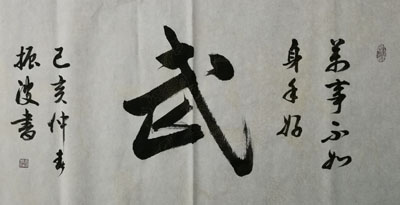 万事不如
身手好
武
己亥仲春
振波书